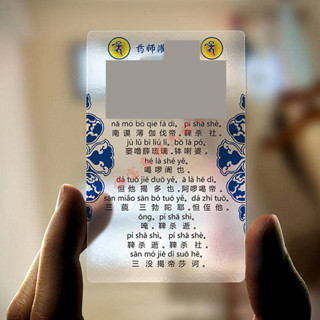 药师灌
nā mó bó qié fá dì, pí shā shè,
南谟薄伽伐帝。鞞杀社。
jù lū bì liú lí, bō lá pó,
窭噜薛琉璃。钵喇婆。
hé là shé yé,
喝啰阇也。
dá tuō jiē duō yě, ā là hē dì
但他揭多也。阿啰喝帝。
sān miǎo sān bó tuó yē, dá zhí tuō,
三藐三勃陀耶。但侄他。
ōng, pí shā shì,
唵。鞞杀逝。
pí shā shì, pí shā shè,
鞞杀逝。鞞杀社。
sān mó jiē dì suō hē,
三没揭帝莎诃。